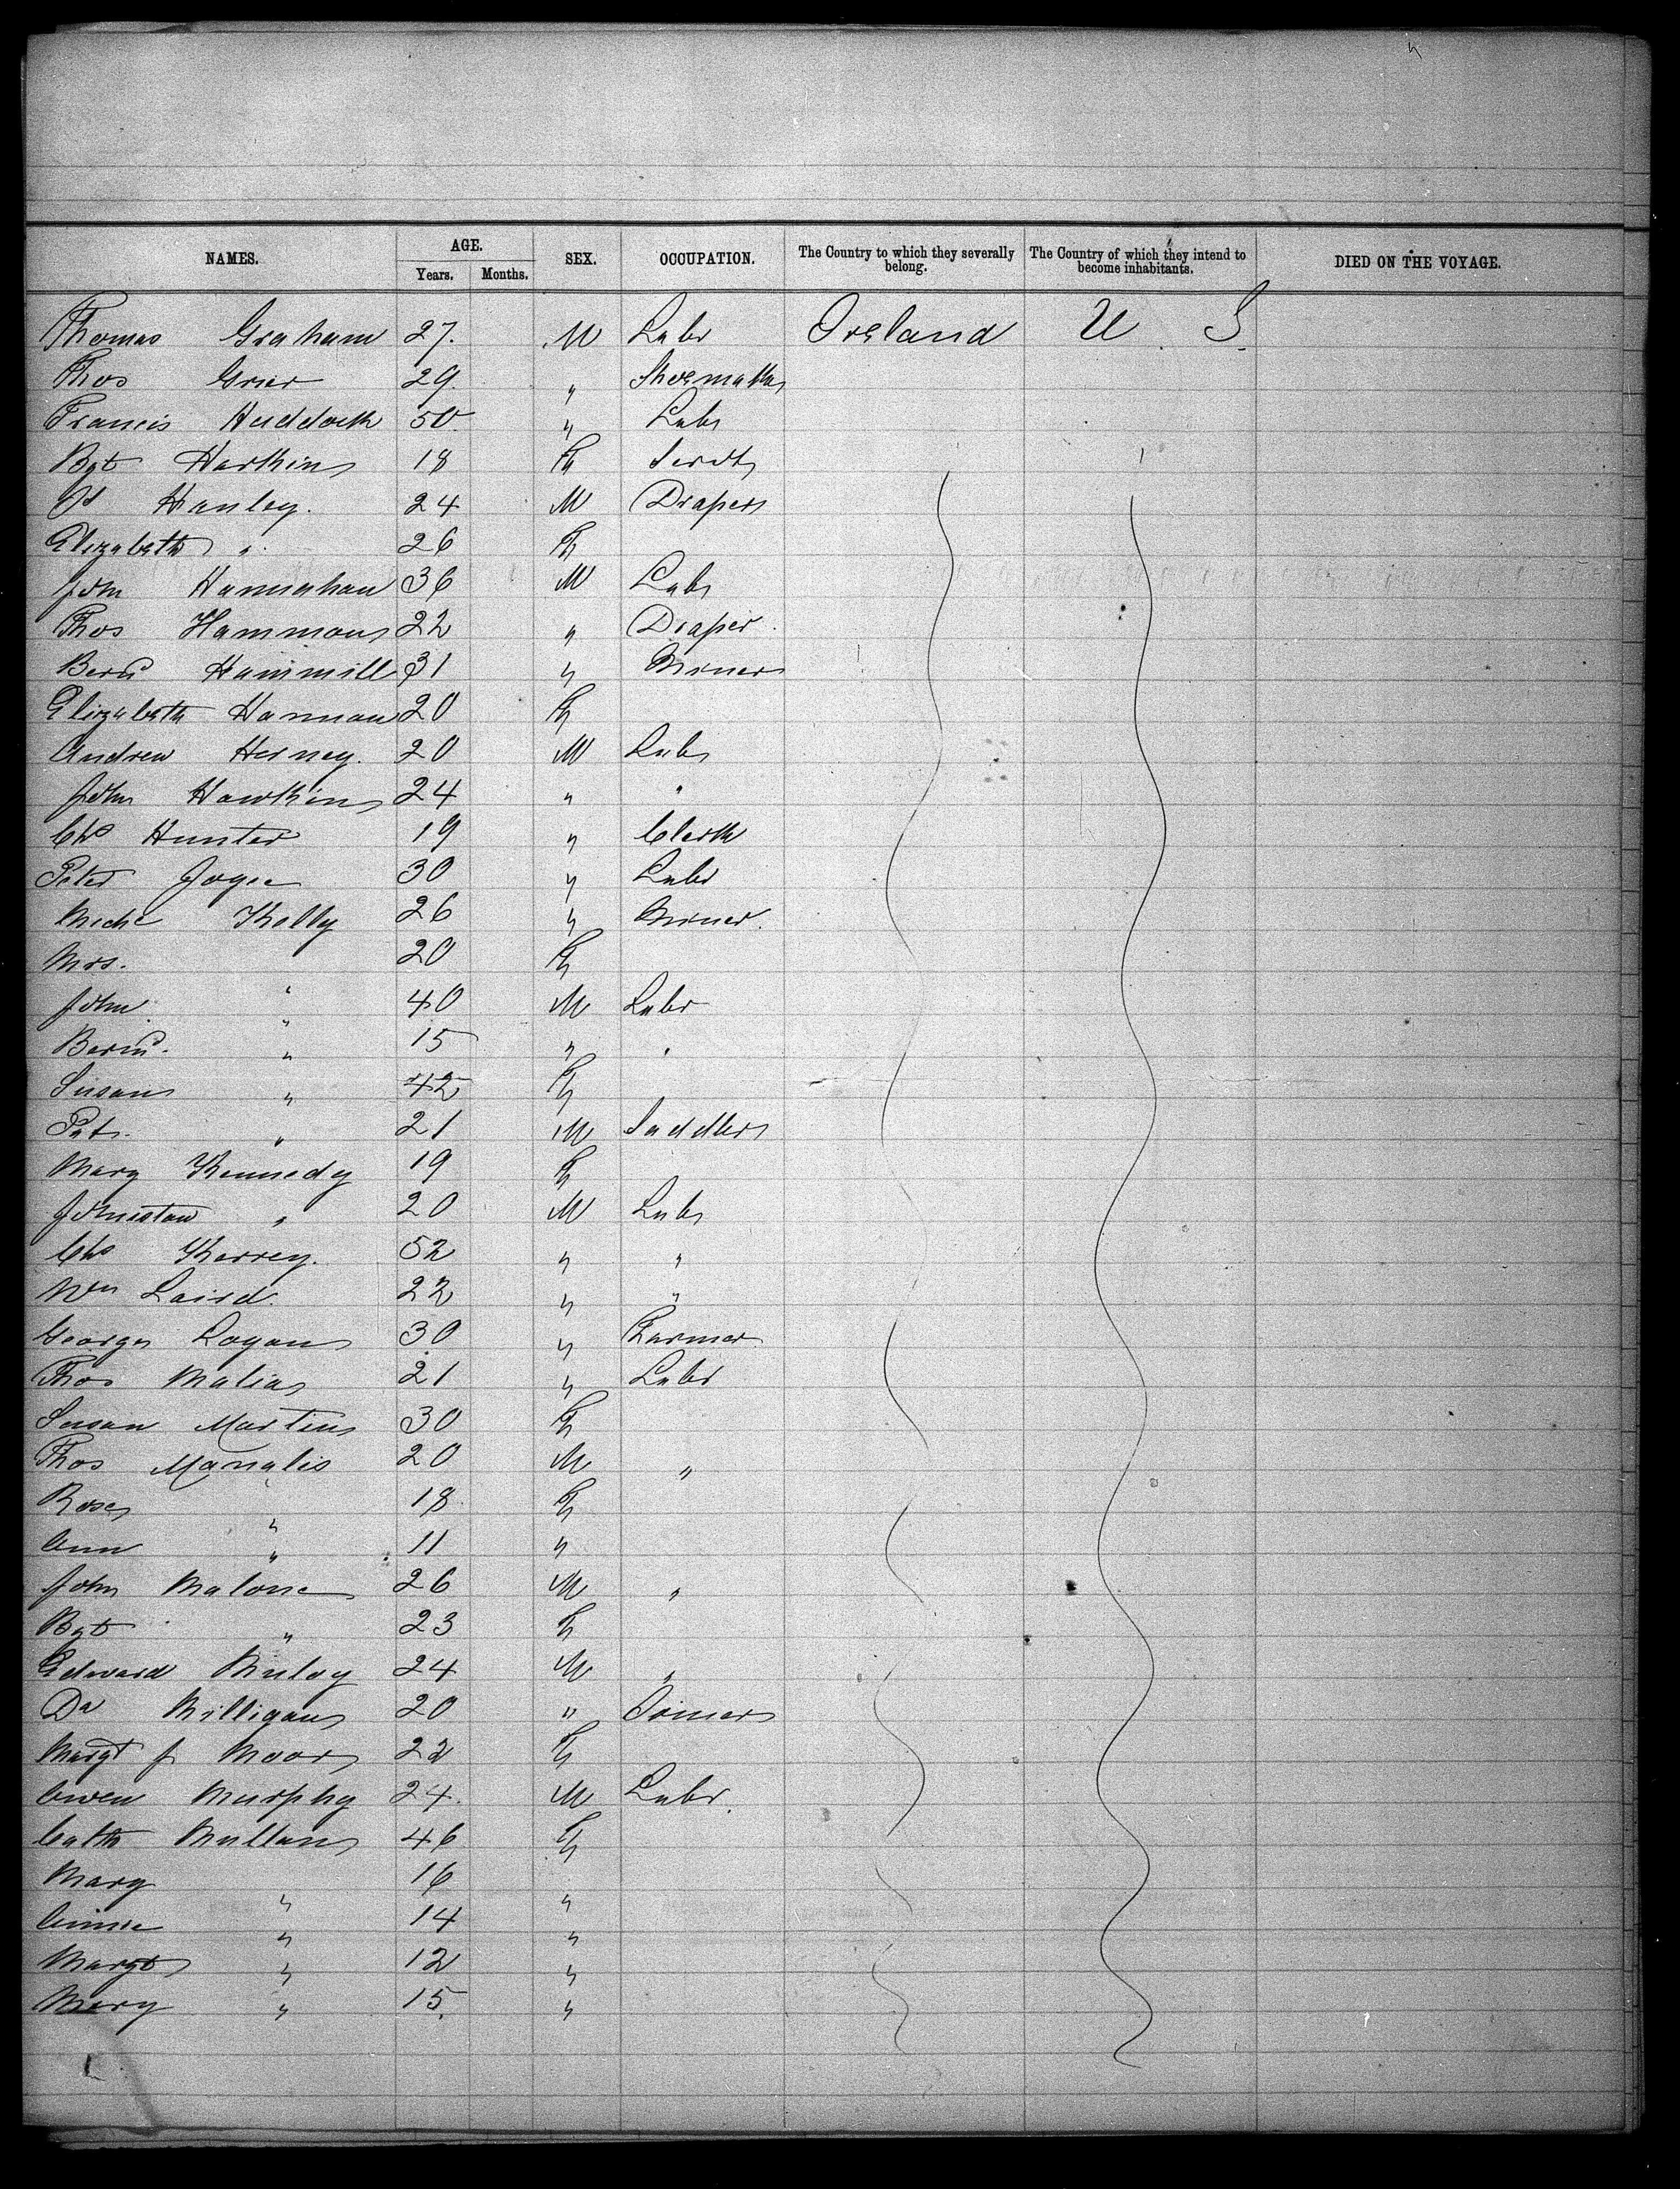 NAMES. AGE. SEX. OCCUPATION. The Country to which they severally belong. The Country of which they intend to become inhabitants. DIED ON THE VOYAGE.
Years. Months.
Thomas Graham 27. M Labr Ireland U. S.
Thos Grier 29 " Shoemaker
Francis 50 " Labr
Bgt Harkins 18 F Servt
Hanley. 24 M Draper
Elizabeth " 26 F
John 36 M Labr
Thos Hammon 22 " Draper
Bernd Hammill 31 " Miner
Elizabeth Hannon 20 F
Andrew Herney. 20 M Labr
John Hawkins 24 " "
Chs Hunter 19 " Clerk
Peter Joyce 30 " Labr
Michl Kelly 26 " Miner.
Mrs. " 20 F
John " 40 M Labr
Bernd. " 15 " "
Susan " 42 F
Pat. " 21 M Saddler
Mary Kennedy 19 F
Johnston " 20 M Labr
Chs 52 " "
Wm Laird. 22 " "
George Logan 30 " Farmer
Thos Malia 21 " Labr
Susan Martin 30 F
Thos Manalis 20 M "
Rose " 18 F
Ann " 11 "
John Malone 26 M "
Bgt " 23 F
Edward 24 M "
Da Milligan 20 " Joiner
Margt J Moor 22 F
Owen Murphy 24. M Labr.
Cath Mullan 46 F
Mary " 16 "
Annie " 14 "
Margt " 12 "
Mary " 15 "